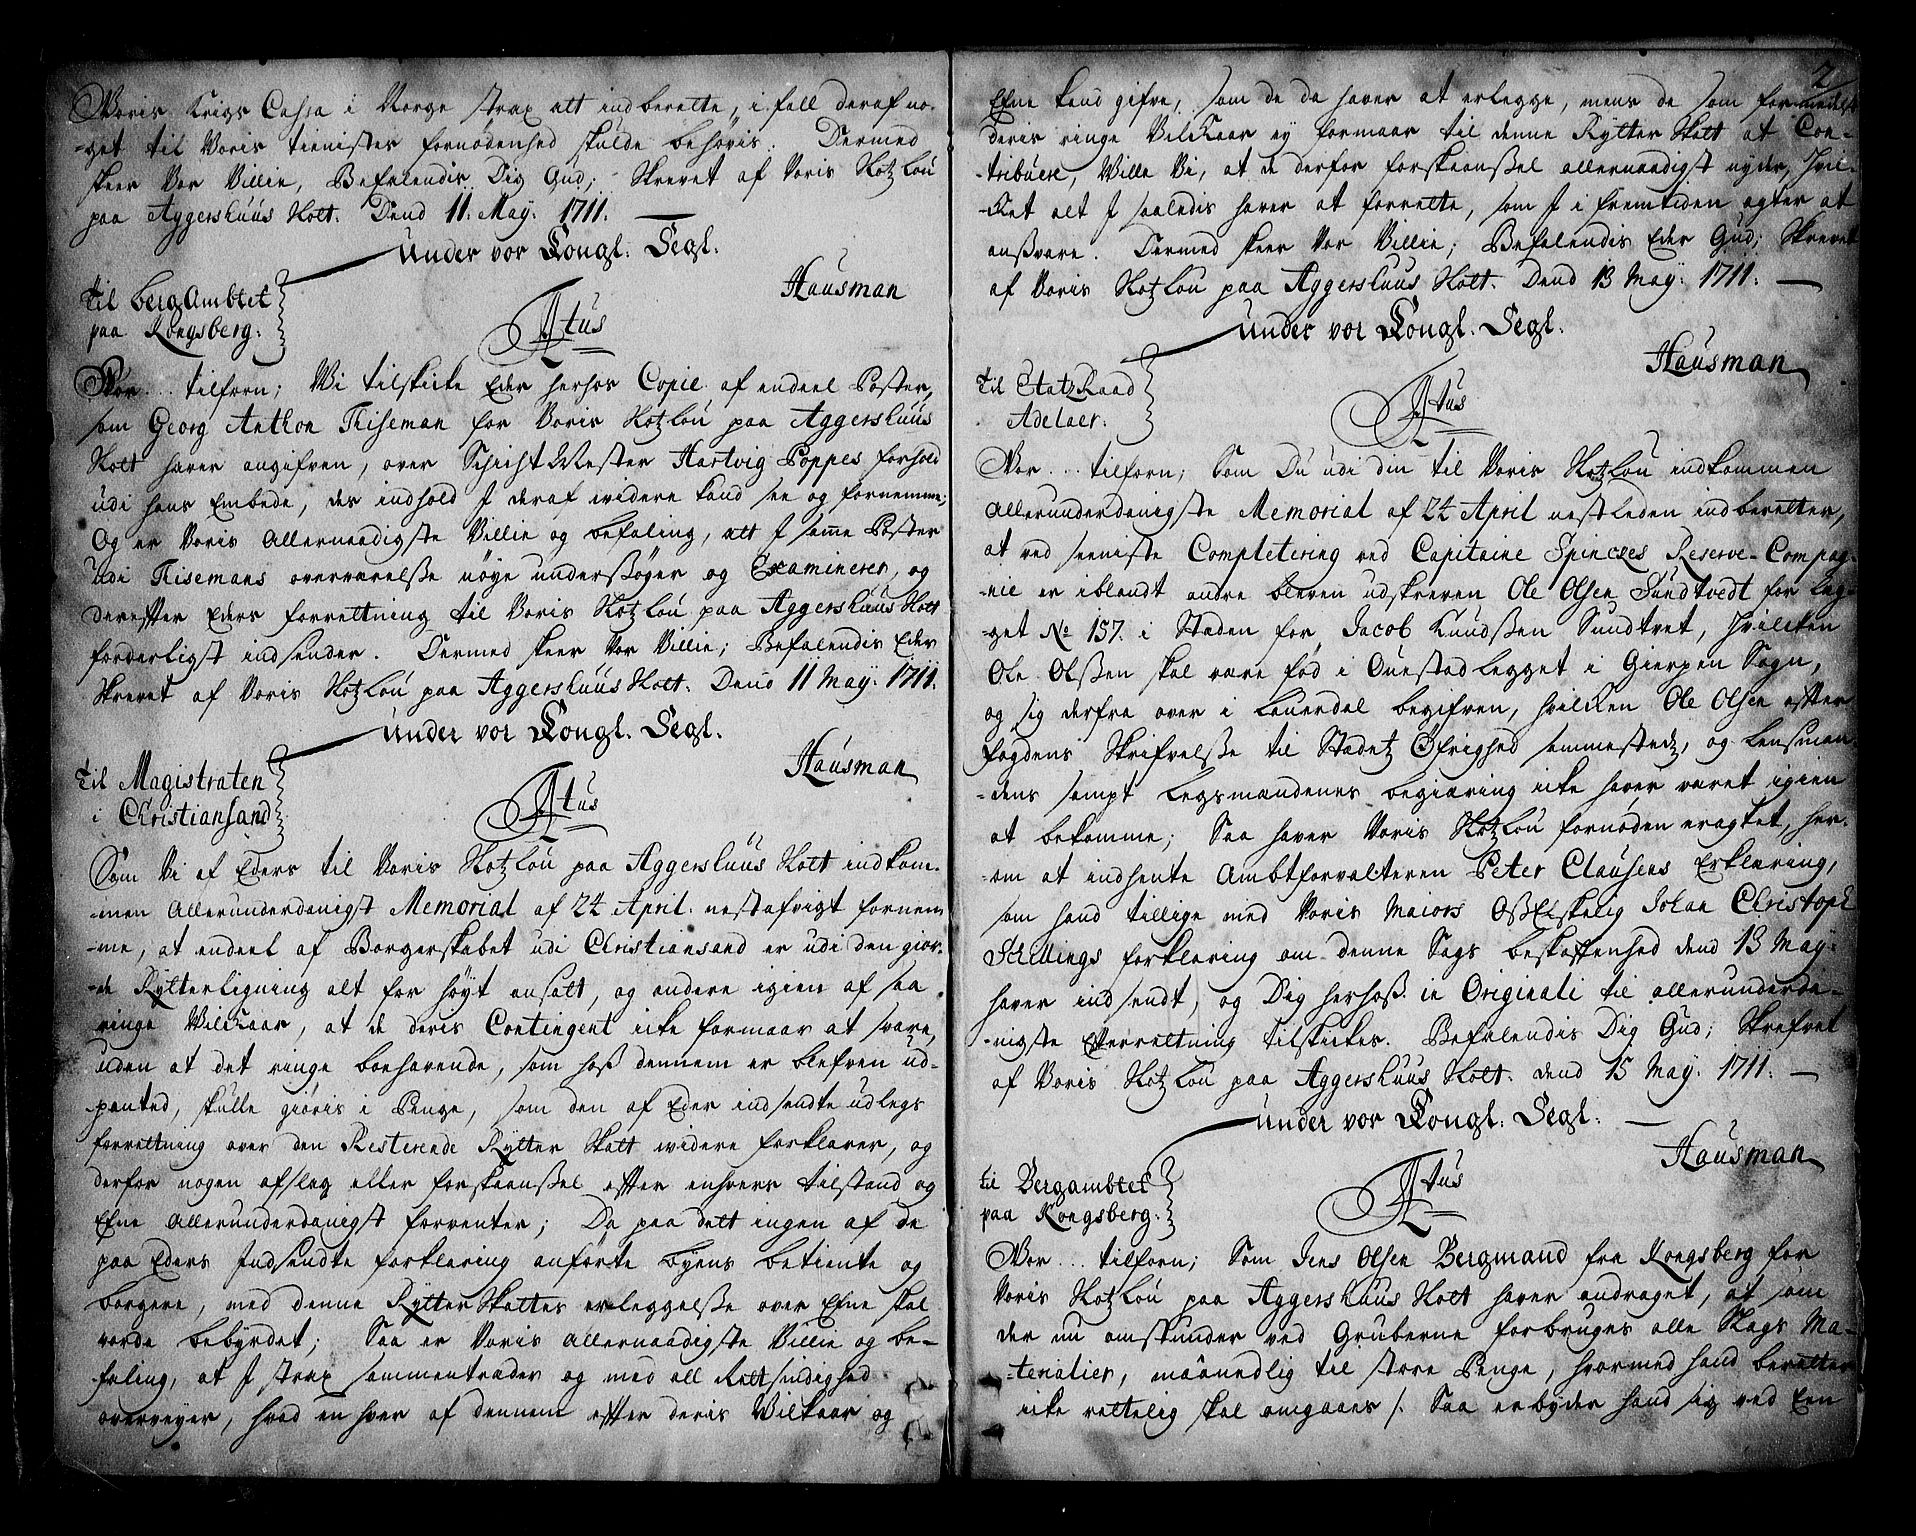 Voris Krigs Cassa i Norge strax att indberette, i fall deraf no-
-get til Voris tienistes fornødenhed skulde behøvis. Dermed
skeer Vor Villie, Befalendis Dig Gud; Skrevet af Voris Slotz Lou
paa Aggershuus Slott. Dend 11. May. 1711.
Under vor Kongl: Segl.
Hausman
Til BergAmbtet
paa Kongsberg.
F4tus
Vor... tilforn; Vi tilskicke Eder herhos Copie af endeel Poster,
som Georg Anthon Thiseman for Voris Slotz Lou paa Aggershuus
Slott hafver angifven, over Schicht Mester Hartvig Poppes forhold
udi hans Embede, des indhold I deraf widere kand see og fornemme;
Og er Voris Allernaadigste Villie og befaling, att I samme Poster
udi Thisemans overværelse nøye undersøger og Examinerer, og
derefter Eders forrettning til Voris Slotz Lou paa Aggershuus Slott
forderligst indsender. Dermed skeer Vor Villie; Befalendis Eder
Skrevet af Voris Slotz Lou paa Aggershuus Slott. Dend 11 May. 1711.
Under vor Kongl. Segl.
Hausman
Til Magistraten
i Christiansand
Atus
Som Vi af Eders til Voris Slotz Lou paa Aggershuus Slott indkom-
-men Allerunderdanigst Memorial af 24 April nestafvigt fornem
-me, at endeel af Borgerskabet udi Christiansand er udi den gior-
-de Rytterligning alt for høyt ansatt, og andere igien af saa
ringe Vilkaar, at de deris Contingent icke formaar at svare,
uden at det ringe boehavende, som hoß dennem er blefven ud-
panted, skulle giøris i Penge, som den af Eder indsendte udlegs
forrettning over den Resterende Rytter Skatt widere forklarer, og
derfor nogen afslag eller forskaanßel efter enhvers tilstand og
Efne Allerunderdanigst forventer; Da paa dett ingen af de
paa Eders Indsendte forklaring anførte byens betiente og
borgere, med denne Rytter Skattes erleggelße over Efne skal
vorde bebyrdet; Saa er Voris Allernaadigste Villie og be-
-faling, at I strax sammentræder og med all Rettsindighed
overveyer, hvad en hver af dennem efter deris Vilkaar og
2
Efne kand gifve, som de da haver at erlegge, mens de som formedelst
deris ringe Vilkaar ey formaar til denne Rytter Skatt at Con-
-tribuere, Wille Vi, at de derfor forskaanßel allernaadigst nyder, Hvil-
-ket alt I saaledis haver at forrette, som I i fremtiden agter at
anßvare. Dermed skeer Vor Villie; Befalendis Eder Gud; Skrevet
af Voris Slotz Lou paa Aggershuus Slott. Dend 13 May. 1711.
Under vor Kongl. Segl.
Hausman
Til Etatz Raad
Adelaer.
Atus
Vor... tilforn; Som Du udi din til Voris Slotz Lou indkommen
Allerunderdanigste Memorial af 24 April nestleden indberetter,
at ved seeniste Completering ved Capitaine Spinczes Reserve-Compag-
-nie er iblandt andre bleven udskreven Ole Olsen Sundtvedt for Leg-
-get No 157. i Staden for Jacob Knudßen Sundtvet, Hvilcken
Ole Olßen skal være fød i Ouestad Legget i Gierpen Sogn,
og sig derfra over i Lauerdal begifven, hvilcken Ole Olsen efter
fogdens Skrifvelße til Stadetz Øfrighed sammestedz, og Lensman
-dens sampt Legsmændenes begiæring icke haver været igien
at bekomme; Saa haver Voris Slotz Lou fornøden eragtet, her-
-om at indhente Ambtforvalteren Peter Claußens Erklæring,
som hand tillige med Voris Maiors Oßelskelig Johan Christoph
Schillings forklaring om denne Sags beskaffenhed dend 13 May.
haver indsendt, og Dig herhoß in Originali til allerunderda-
-nigste Efterrettning tilskickes. Befalendis Dig Gud; Skrefvet
af Voris Slotz Lou paa Aggershuus Slott. dend 15 May. 1711.
Under vor Kongl. Segl.
Hausman
til Bergambtet
paa Kongsberg.
Atus
Vor... tilforn; Som Jens Olsen Bergmand fra Kongsberg for
Voris Slotz Lou paa Aggershuus Slott haver andraget, at som
der nu omstunder ved Gruberne forbruges alle Slags Ma-
-terialier, maanedlig til store Penge, hvormed hand beretter
icke rettelig skal omgaaes /. Saa erbyder hand sig ved Een